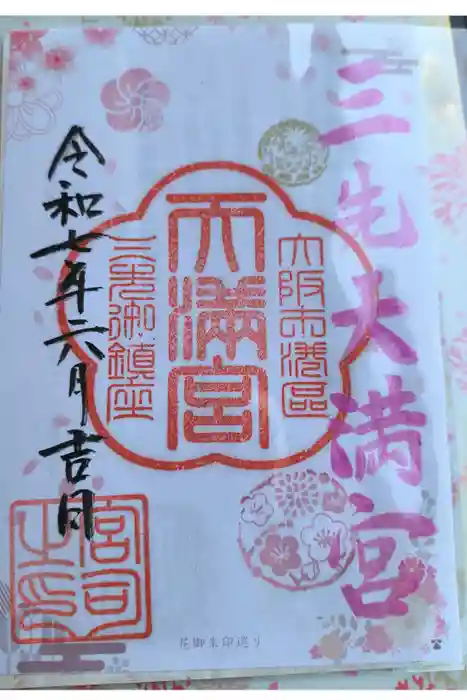 三先天満宮
大阪市港區
天満宮
三先御鎮座
令和七年六月吉日
宮司
之印
花御朱印巡り